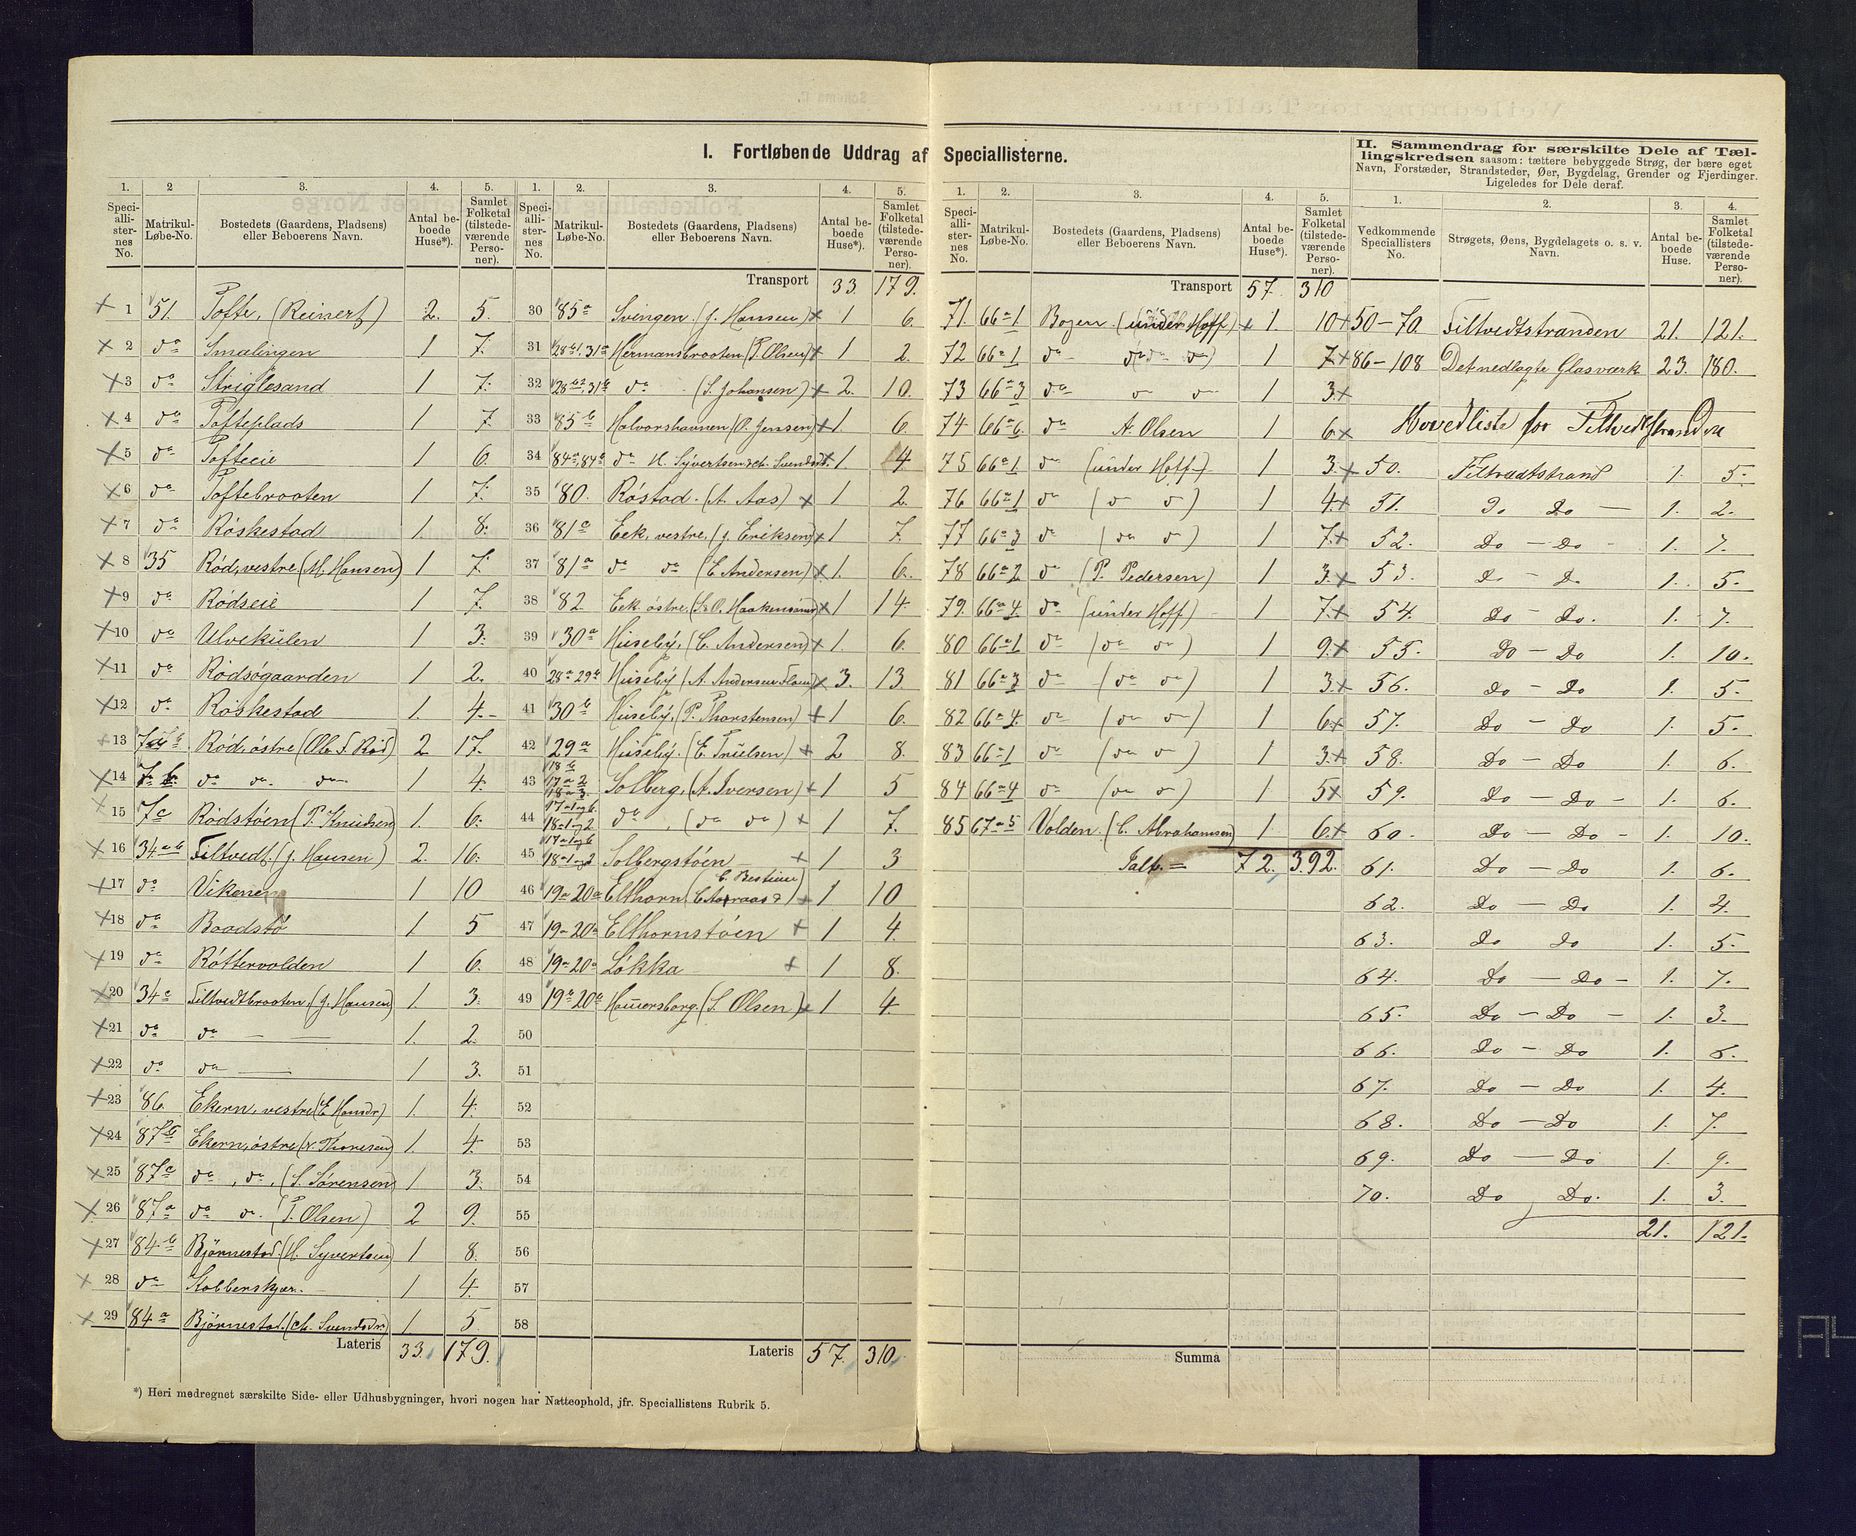 I. Fortløbende Uddrag af Speciallisterne.
1. 2 3. 4. 5.
Speciallisternes No. Matrikul-Løbe-No. Bostedets (Gaardens, Pladsens) eller Beboerens Navn. Antal beboede Huse*). Samlet Folketal (tilstedeværende Personer).
1 51. Tofte, (Reinert) 2. 5.
2 do Smalingen 1 7.
3 do Striglesand 1 7.
4 do Tofteplads 1 7.
5 do Tofteeie 1 6.
6 do Toftebrooten 1 7.
7 do Røskestad 1. 8.
8 35 Rød, vestre (M. Hansen) 1 7.
9 do Rødseie 1 7.
10 do Ulvekulen 1 3.
11 do Rødsøgaarden 1 2.
12 do Røskestad 1. 4.
13 Rød, østre (Ole F. Rød) 2. 17.
14 7 b. do do do 1 4.
15 7c Rødstøen (P. Knudsen) 1. 6.
16 34 a b Filtvedt. (J. Hansen) 2. 16.
17 do Vikenen 1 10
18 do Baadstø 1 5
19 do Røttervolden 1 6.
20 34c Filtvedtbrooten, (J. Hansen) 1. 3.
21 do do 1. 2.
22 do do 1 3.
23 86. Ekern, vestre (E Hansdr) 1. 4.
24 87b Ekern, østre (N. Thoresen) 1. 4.
25 87c do, do, (S. Sørensen) 1 3.
26 87a do do (P. Olsen) 2 9.
27 84b Bjørnestad. (H. Syvertsen) 1 8.
28 do Kobberskjær. 1 4.
29 84a Bjørnestad. (Ch. Svendsdr) 1. 5.
Lateris 33. 179.
1. 2. 3. 4. 5.
Speciallisternes No. Matrikul-Løbe-No. Bostedets (Gaardens, Pladsens) eller Beboerens Navn. Antal beboede Huse*). Samlet Folketal (tilstedeværende Personer).
Transport 33. 179.
30 85a Svingen. (J. Hansen) 1 6.
31 28b1, 31a Hermansbrooten (P. Olsen) 1 2.
32 28b2, 31b do (S. Johansen) 2. 10.
33 85b Halvorshavnen (O. Jensen) 1. 6.
34 84a, 84b do H. Syvertsen 1. 4.
35 80. Røstad. (A. Aas) 1 2.
36 81a Eek, vestre, (J. Eriksen) 1 7.
37 81a do do (E. Andersen) 1. 6.
38 82 Eek østre, 1 14.
39 30a Huseby, (C. Andersen) 1. 6.
40 28a 29b Huseby (A. Andersen 3. 13.
41 30b Huseby, (P. Thorstensen) 1 6.
42 29a Huseby. (E. Truelsen) 2 8.
43 18b 17a2 18a3 Solberg, (A. Iversen) 1 5
44 17a1og6. 18a1og2 do, (do do) 1 7.
45 17a1og6 18a1og2 Solbergstøen 1 3
46 19a 20a Elthorn 1 10
47 19a 20a Elthornstøen 1 4.
48 19a 20a Løkka 1 8.
49 19b 20b (S. Olsen) 1 4.
50
51
52
53
54
55
56
57
58
Lateris 57. 310.
*) Heri medregnet særskilte Side- eller Udhusbygninger, hvori nogen har Natteophold, jfr. Speciallistens Rubrik 5.
1. 2. 3. 4. 5.
Speciallisternes No. Matrikul-Løbe-No. Bostedets (Gaardens, Pladsens) eller Beboerens Navn. Antal beboede Huse*). Samlet Folketal (tilstedeværende Personer).
Transport 57. 310
71. 66a1 Bogen (under Hoff) 1. 10
72 66a1 do (do do) 1 7.
73 66a3 do do do 1 3.
74 66a6. do A. Olsen 1 6.
75 66a1 do (under Hoff) 1 3.
76 66a1 do (do do) 1 4.
77 66a3 do (do do) 1 7.
78 66a2 do (P. Pedersen) 1 3.
79. 66a4 do (under Hoff) 1 7.
80 66a1 do (do do) 1 9.
81 66a3 do (do do) 1 3.
82 66a4. do (do do) 1 6.
83 66a1 do (do do) 1 3.
84 66a4 do (do do) 1 5
85 67a5 Volden. (C. Abrahamsen) 1 6.
Talt = 72. 392.
Summa
II. Sammendrag for særskilte Dele af Tællingskredsen saasom: tættere bebyggede Strøg, der bære eget Navn, Forstæder, Strandsteder, Øer, Bygdelag, Grender og Fjerdinger. Ligeledes for Dele deraf.
1. 2. 3. 4.
Vedkommende Speciallisters No. Strøgets, Øens, Bygdelagets o. s. v. Navn. Antal beboede Huse. Samlet Folketal (tilstedeværende Personer).
50-70. Filtvedtstranden 21. 121.
86-108 Det nedlagte Glasværk 23. 180.
Hovedliste for Filtvedtstranden
50. Filtvedtstrand 1. 5.
51. Do Do 1. 2.
52. Do - Do 1. 7.
53. Do - Do 1. 5.
54. Do - Do. 1. 7.
55. Do - Do 1. 10.
56. Do - Do 1. 5.
57. Do - Do 1. 5.
58. Do - Do 1. 6.
59. Do - Do - 1. 6.
60. Do - Do - 1. 10.
61. Do - Do 1. 6.
62. Do - Do 1. 4.
63. Do Do 1. 5.
64. Do - Do - 1. 7.
65. Do - Do - 1. 3.
66. Do - Do 1. 6.
67. Do - Do 1. 4.
68. Do - Do 1. 7.
69. Do - Do 1. 9.
70. Do Do. 1. 3.
21. 121.